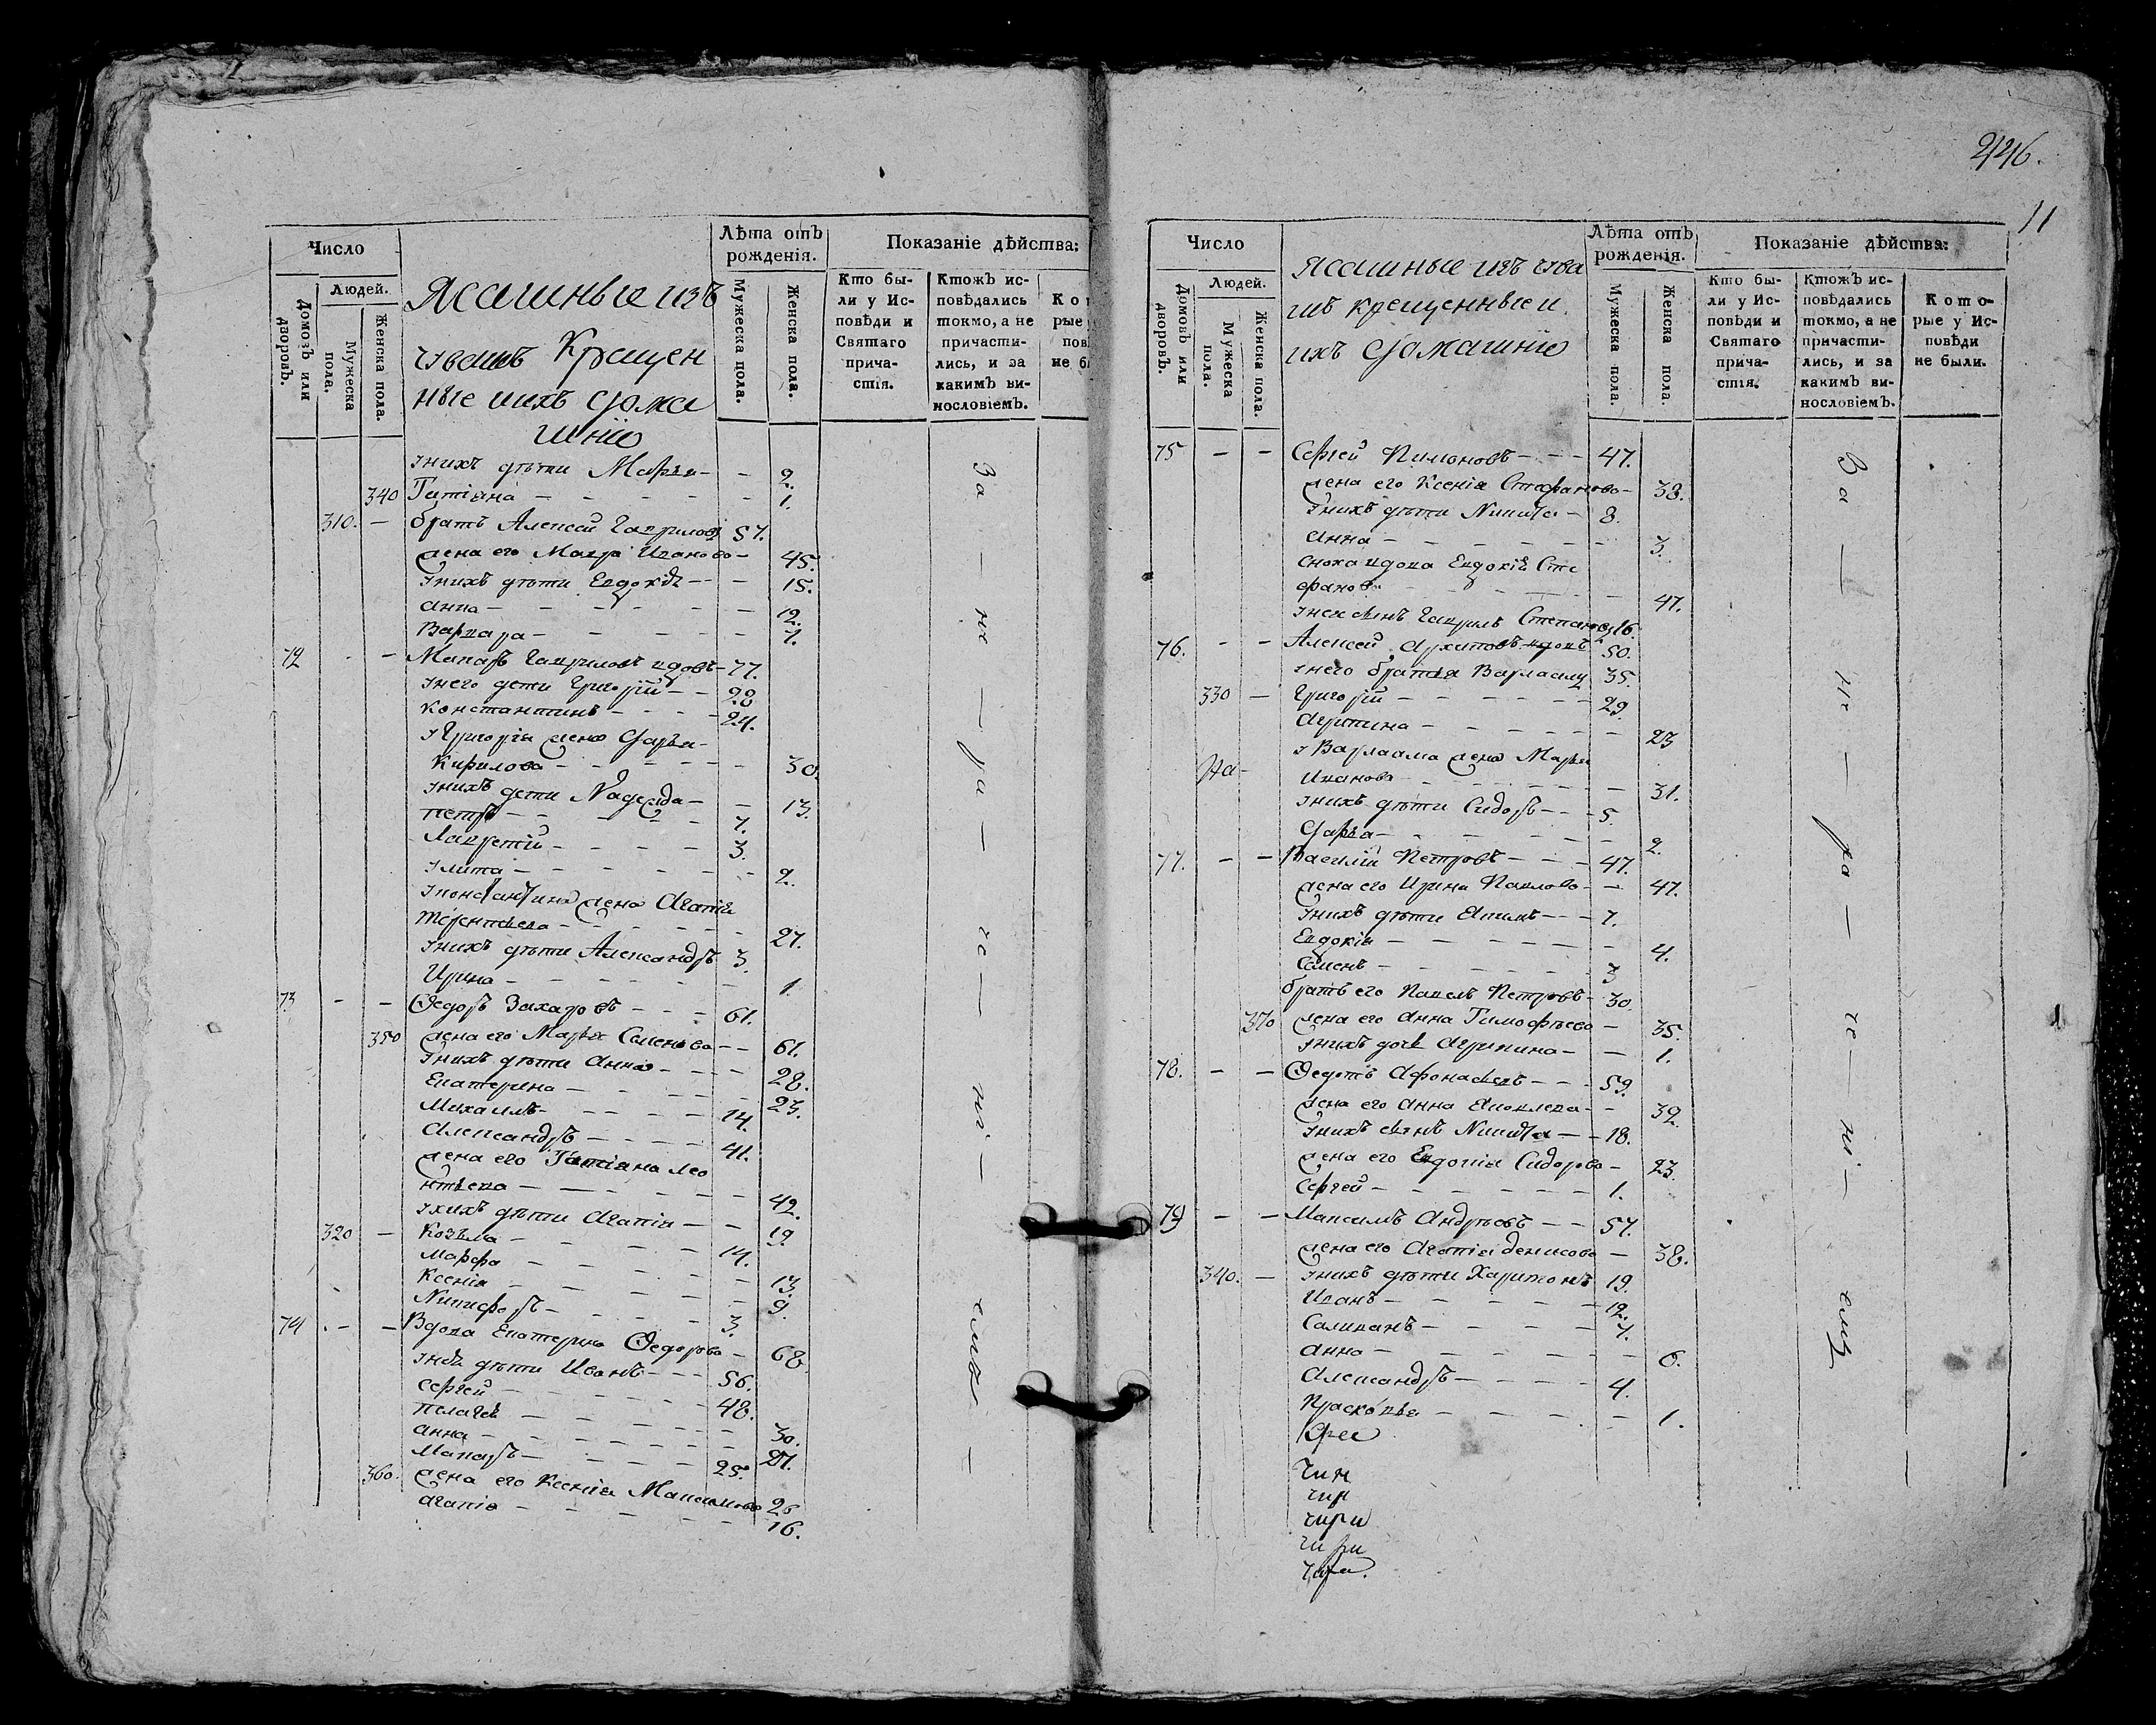 246.
11
Число
Людей.
Домовъ или дворовъ.
Мужеска пола.
Женска пола.
Ясашные изъ
чувашъ Крещен
ные иихъ дома
шніе
Лѣта отъ рожденія.
Мужеска пола.
Женска пола.
Показаніе дѣйства:
Кто бы-
ли у Ис-
повѣди и
Святаго
прича-
стія.
Ктожъ ис-
повѣдались
токмо, а не
причасти-
лись, и за
какимъ ви-
нословіемъ.
унихъ дѣти Марья - - 2.
340 Татіана - - - - 1.
310. - братъ Алексей Гавриловъ 57.
жена его Мавра Иванова - 45.
унихъ дѣти Евдокія - - 15.
Анна - - - - 12.
Варвара - - - - 7.
72 - - Макаръ Гавриловъ вдовъ - 77.
унего дети Григорій - - 28
Константинъ - - - 24.
уГригорія жена Дарья
Кирилова - - - - 30.
унихъ дети Надежда - - 13.
петръ - - - - 7.
Лаврентій - - - - 3.
Улита - - - - 2.
уКонстантина жена Агапія
Терентьева - - - - 27.
унихъ дѣти Александръ 3.
Ирина - - - - 1.
73 - - Ѳедоръ Захаровъ - - - 61.
350 жена его Марья Семенова - - 61.
унихъ дѣти Анна - - - 28.
Екатерина - - - - 23.
Михаилъ - - - - 14.
Александръ - - - - 41.
жена его Татіана Лео
нтьева - - - - 42.
унихъ дѣти Агапія - - 19.
320 - Козьма - - - - 14.
Марфа - - - - 13.
Ксенія - - - - 9
Никифоръ - - - - 3.
74 - - Вдова Екатерина Ѳедорова - 68
унея дѣти Иванъ - - - 56.
Сергей - - - - 48.
пелагея - - - - 30.
анна - - - - 27.
Макаръ - - - - 25.
360. жена его Ксенія Максимова 26
агапія - - - - 16.
За - не - ра - че - ні - емъ -
Число
Людей.
Домовъ или дворовъ.
Мужеска пола.
Женска пола.
Ясашные изъ чува
шъ крещенные и
ихъ домашніе
Лѣта отъ рожденія.
Мужеска пола.
Женска пола.
Показаніе дѣйства:
Кто бы-
ли у Ис-
повѣди и
Святаго
прича-
стія.
Ктожъ ис-
повѣдались
токмо, а не
причасти-
лись, и за
какимъ ви-
нословіемъ.
Кото-
рые у Ис-
повѣди
не были.
75 - - Сергей Пимоновъ - - - 47.
жена его Ксенія Стефанова - 38.
унихъ дѣти Никита - 8.
Анна - - - - 3.
сноха вдова Евдокія Сте
фанова - - - - 47.
унея сынъ Гаврилъ Степановъ 16.
76. - - Алексей Архиповъ вдовъ 50.
унего братья Варлаамъ 35.
330 - Григорій - - - - 29.
Агрипина - - - - 23
уВарлаама жена Марья
Иванова - - - - 31.
унихъ дѣти Сидоръ - - - 5.
Дарья - - - - 2.
77. - - Василій Петровъ - - - 47.
жена его Ирина Павлова - - 47.
унихъ дѣти Якимъ - - - 7.
Евдокія - - - - 4.
Семенъ - - - - 3
братъ его Павелъ Петровъ - 30.
370 жена его Анна Тимофѣева - 35.
унихъ дочь Агрипина - - 1.
78. - - Ѳедотъ Афонасьевъ - - - 59.
жена его Анна Яковлева - - 32.
унихъ сынъ Никита - - 18.
жена его Евдокія Сидорова - 23.
Сергей - - - - 1.
79 - - Максимъ Андрѣевъ - - 57.
жена его Агапія денисова - 38.
340. - унихъ дѣти Харитонъ 19.
Иванъ - - - - 12.
Селиванъ - - - - 7.
Анна - - - - 6.
Александръ - - - - 4.
Прасковья - - - - 1.
чин
чин
чири
чири
За - не - ра - че - ні - емъ